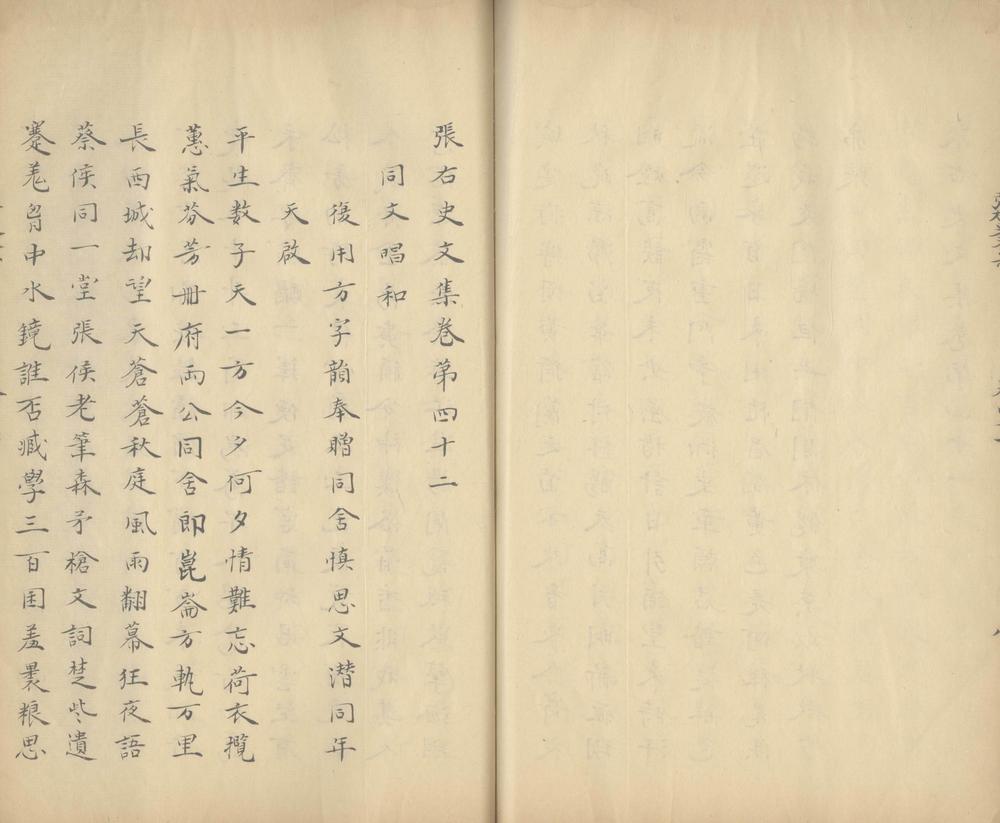 張右史文集卷第四十二
同文唱和
復用方字韻奉贈同舍慎思文潛同年
天啟
平生数子天一方今夕何夕情難忘荷衣攬
蕙氣芬芳冊府両公同舍郎崑崙方軌万里
長西城却望天蒼蒼秋庭風雨翻幕狂夜語
蔡侯同一堂張侯老筆森矛槍文詞楚些遺
蹇羌胷中水鏡誰否臧學三百囷羞裹粮思